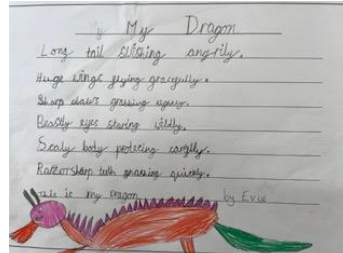 My Dragon
Long tail swishing angrily.
Huge wings flying gracefully.
Sharp claws grabbing
Beastly eyes staring wildly.
Scaly body protecing
Razorsharp teeth gnashing quickly.
This is my Dragon by Evie